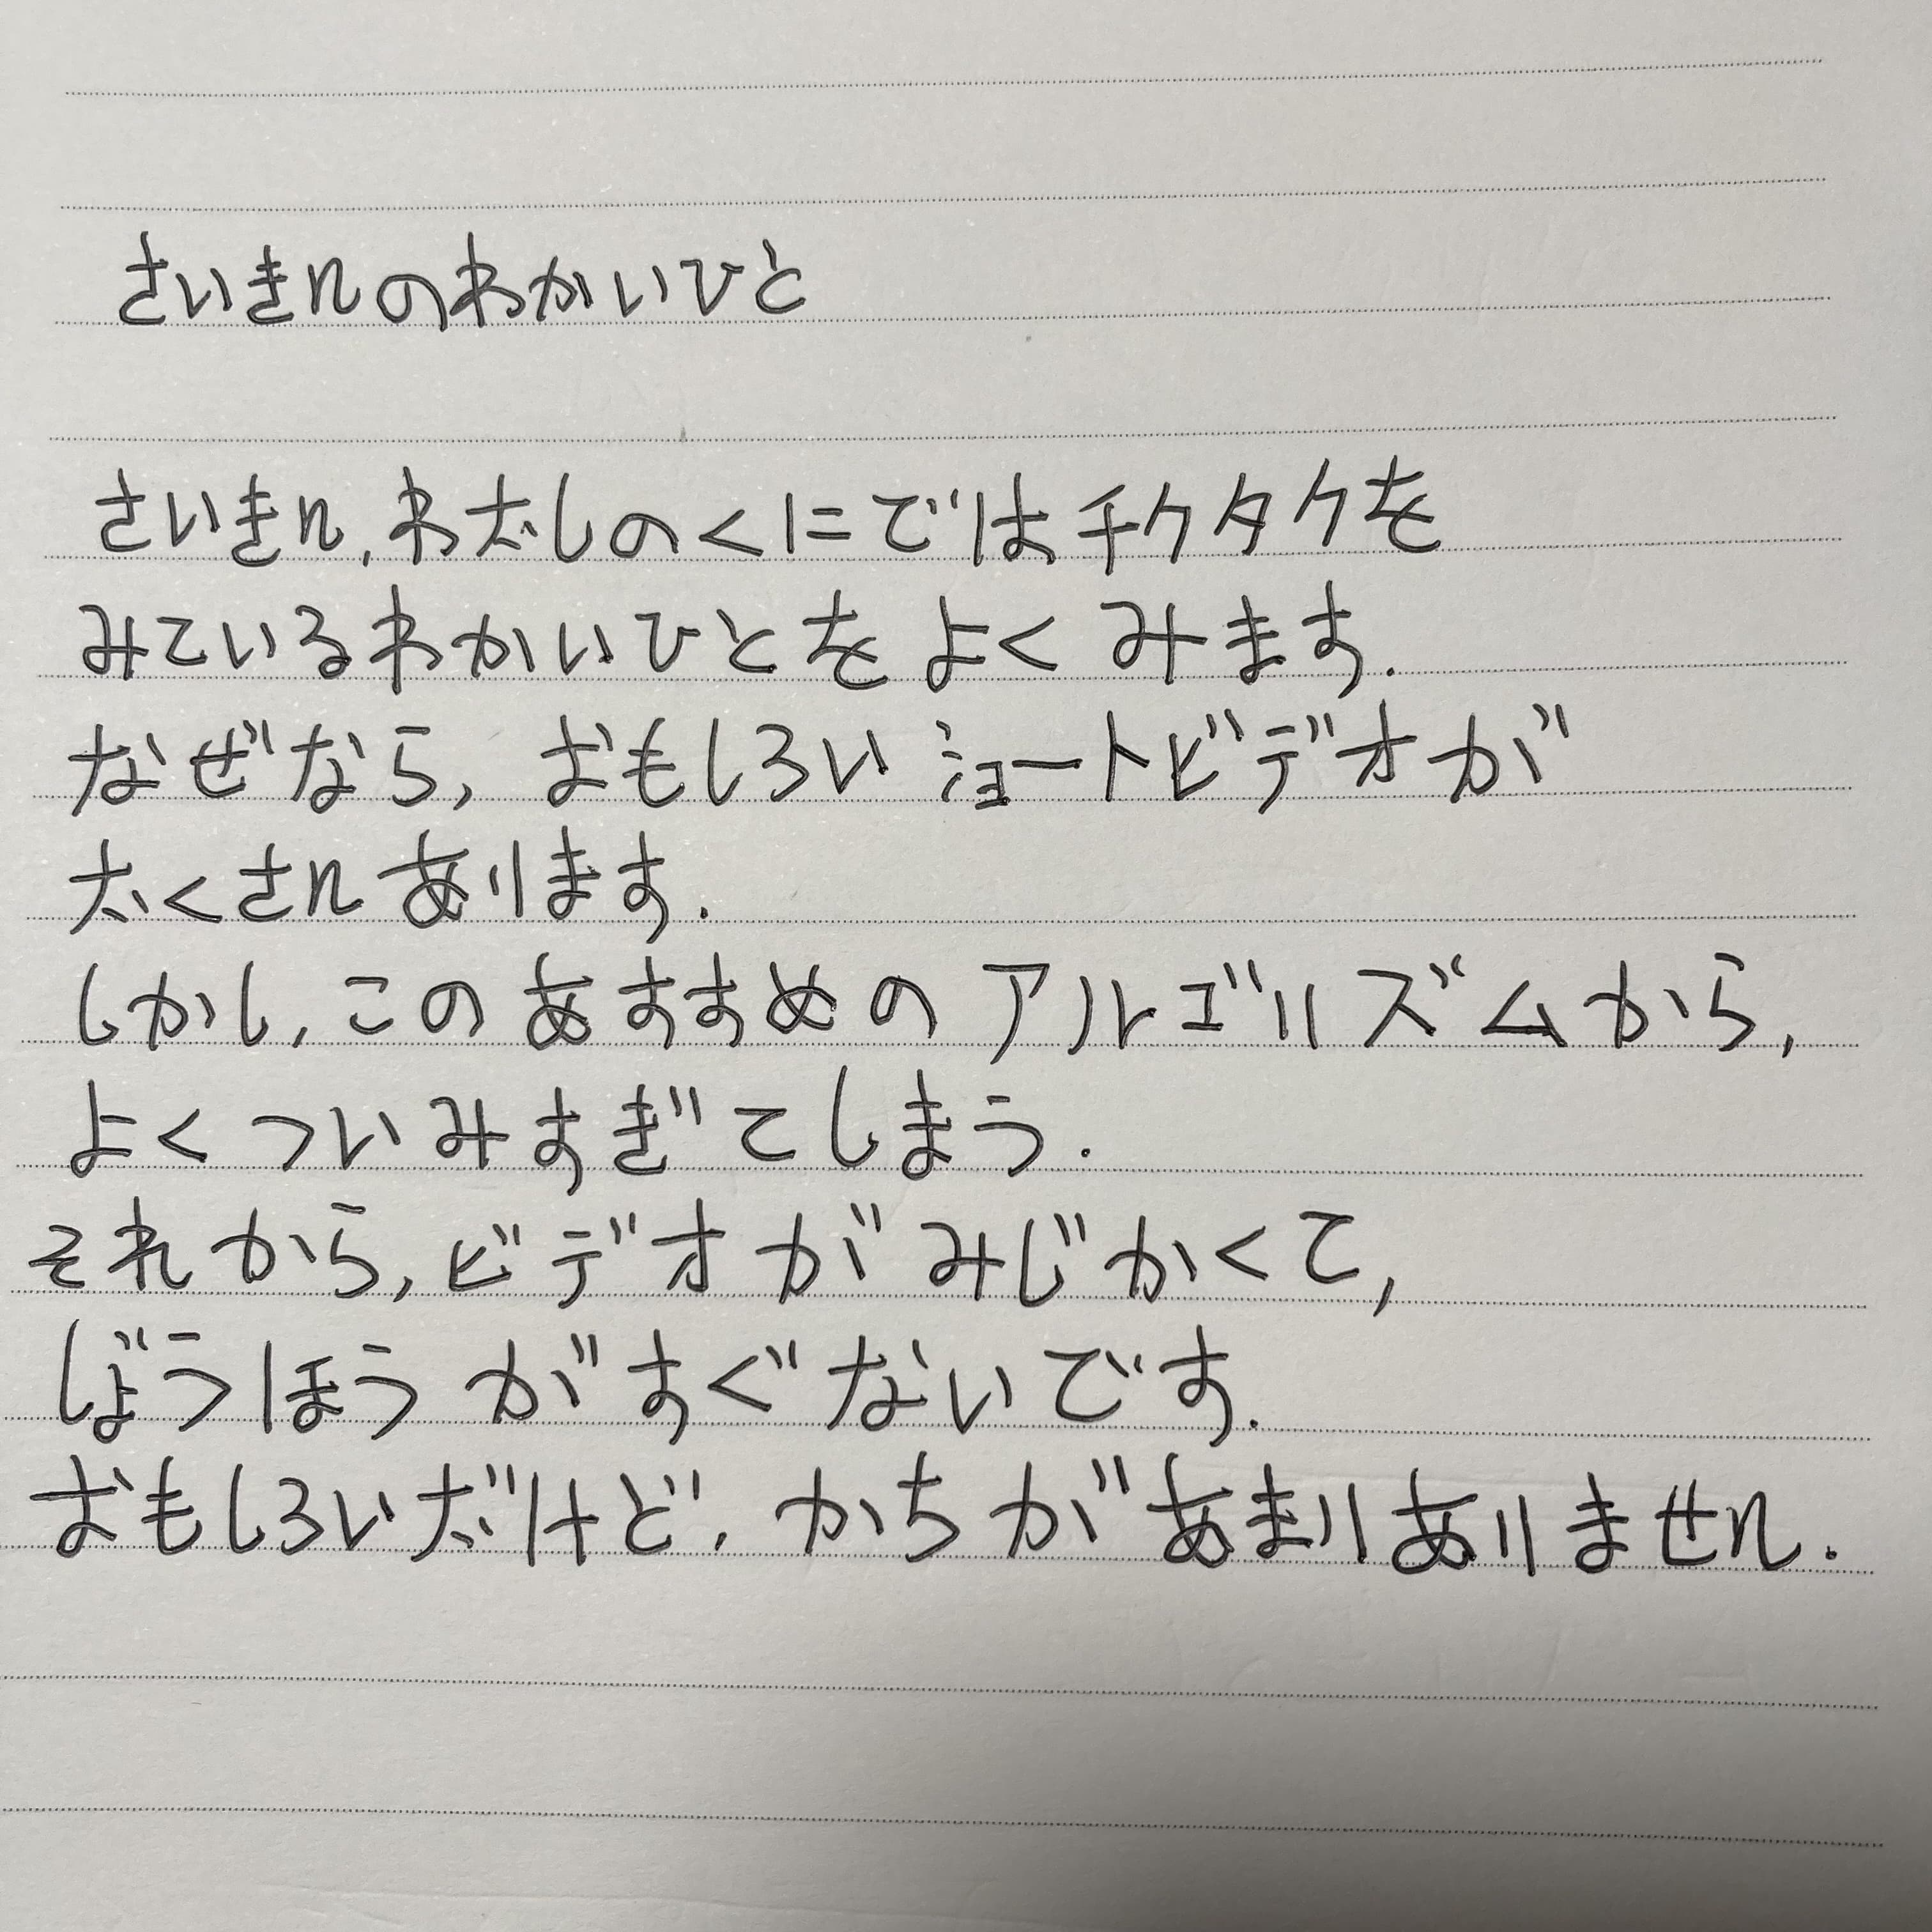 さいきんのわかいひと
さいきん,わたしのくにではチクタクを
みているわかいひとをよくみます.
なぜなら,おもしろいショートビデオが
たくさんあります.
しかし,このあすすめのアルゴリズムから,
よくついみすぎてしまう.
それから,ビデオがみじかくて,
じょうほうがすぐないです.
おもしろいだけど,かちがあまりありません.